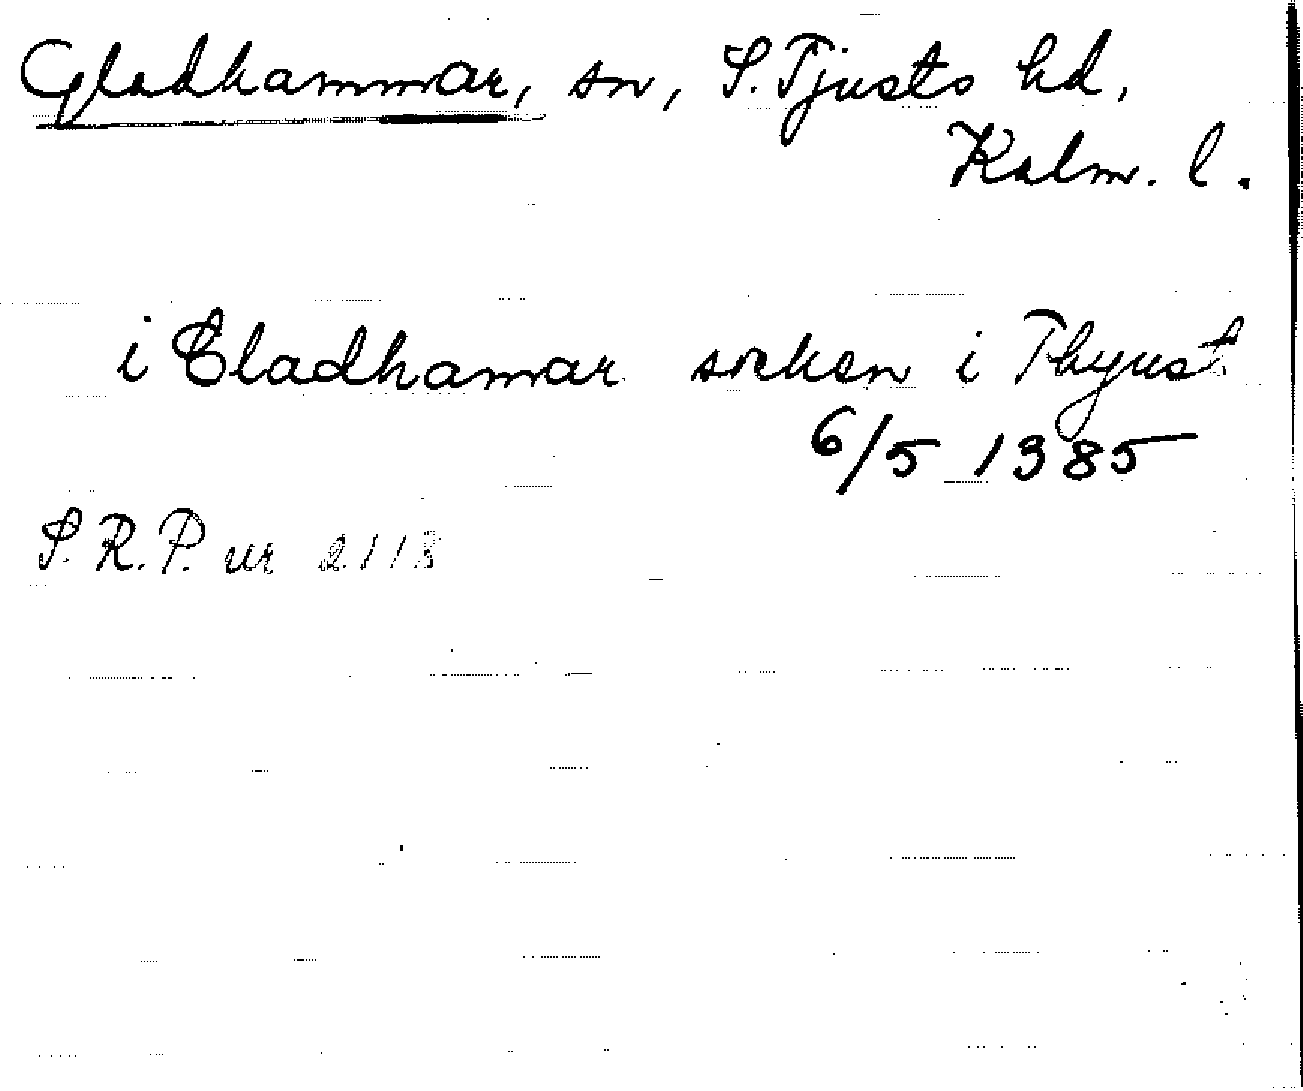 Gladhammar, sn, S. Tjusts hd,
Kalm. l.
i Gladhamar socken i Thyust
6/5 1385
S.R.P. nr 2118